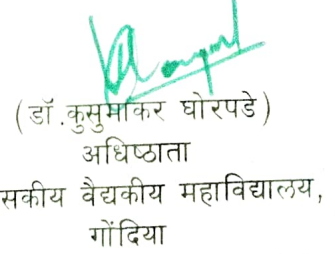 (डॉ.कुसुमाकर घोरपडे)
अधिष्ठाता
सकीय वैद्यकीय महाविद्यालय,
गोंदिया